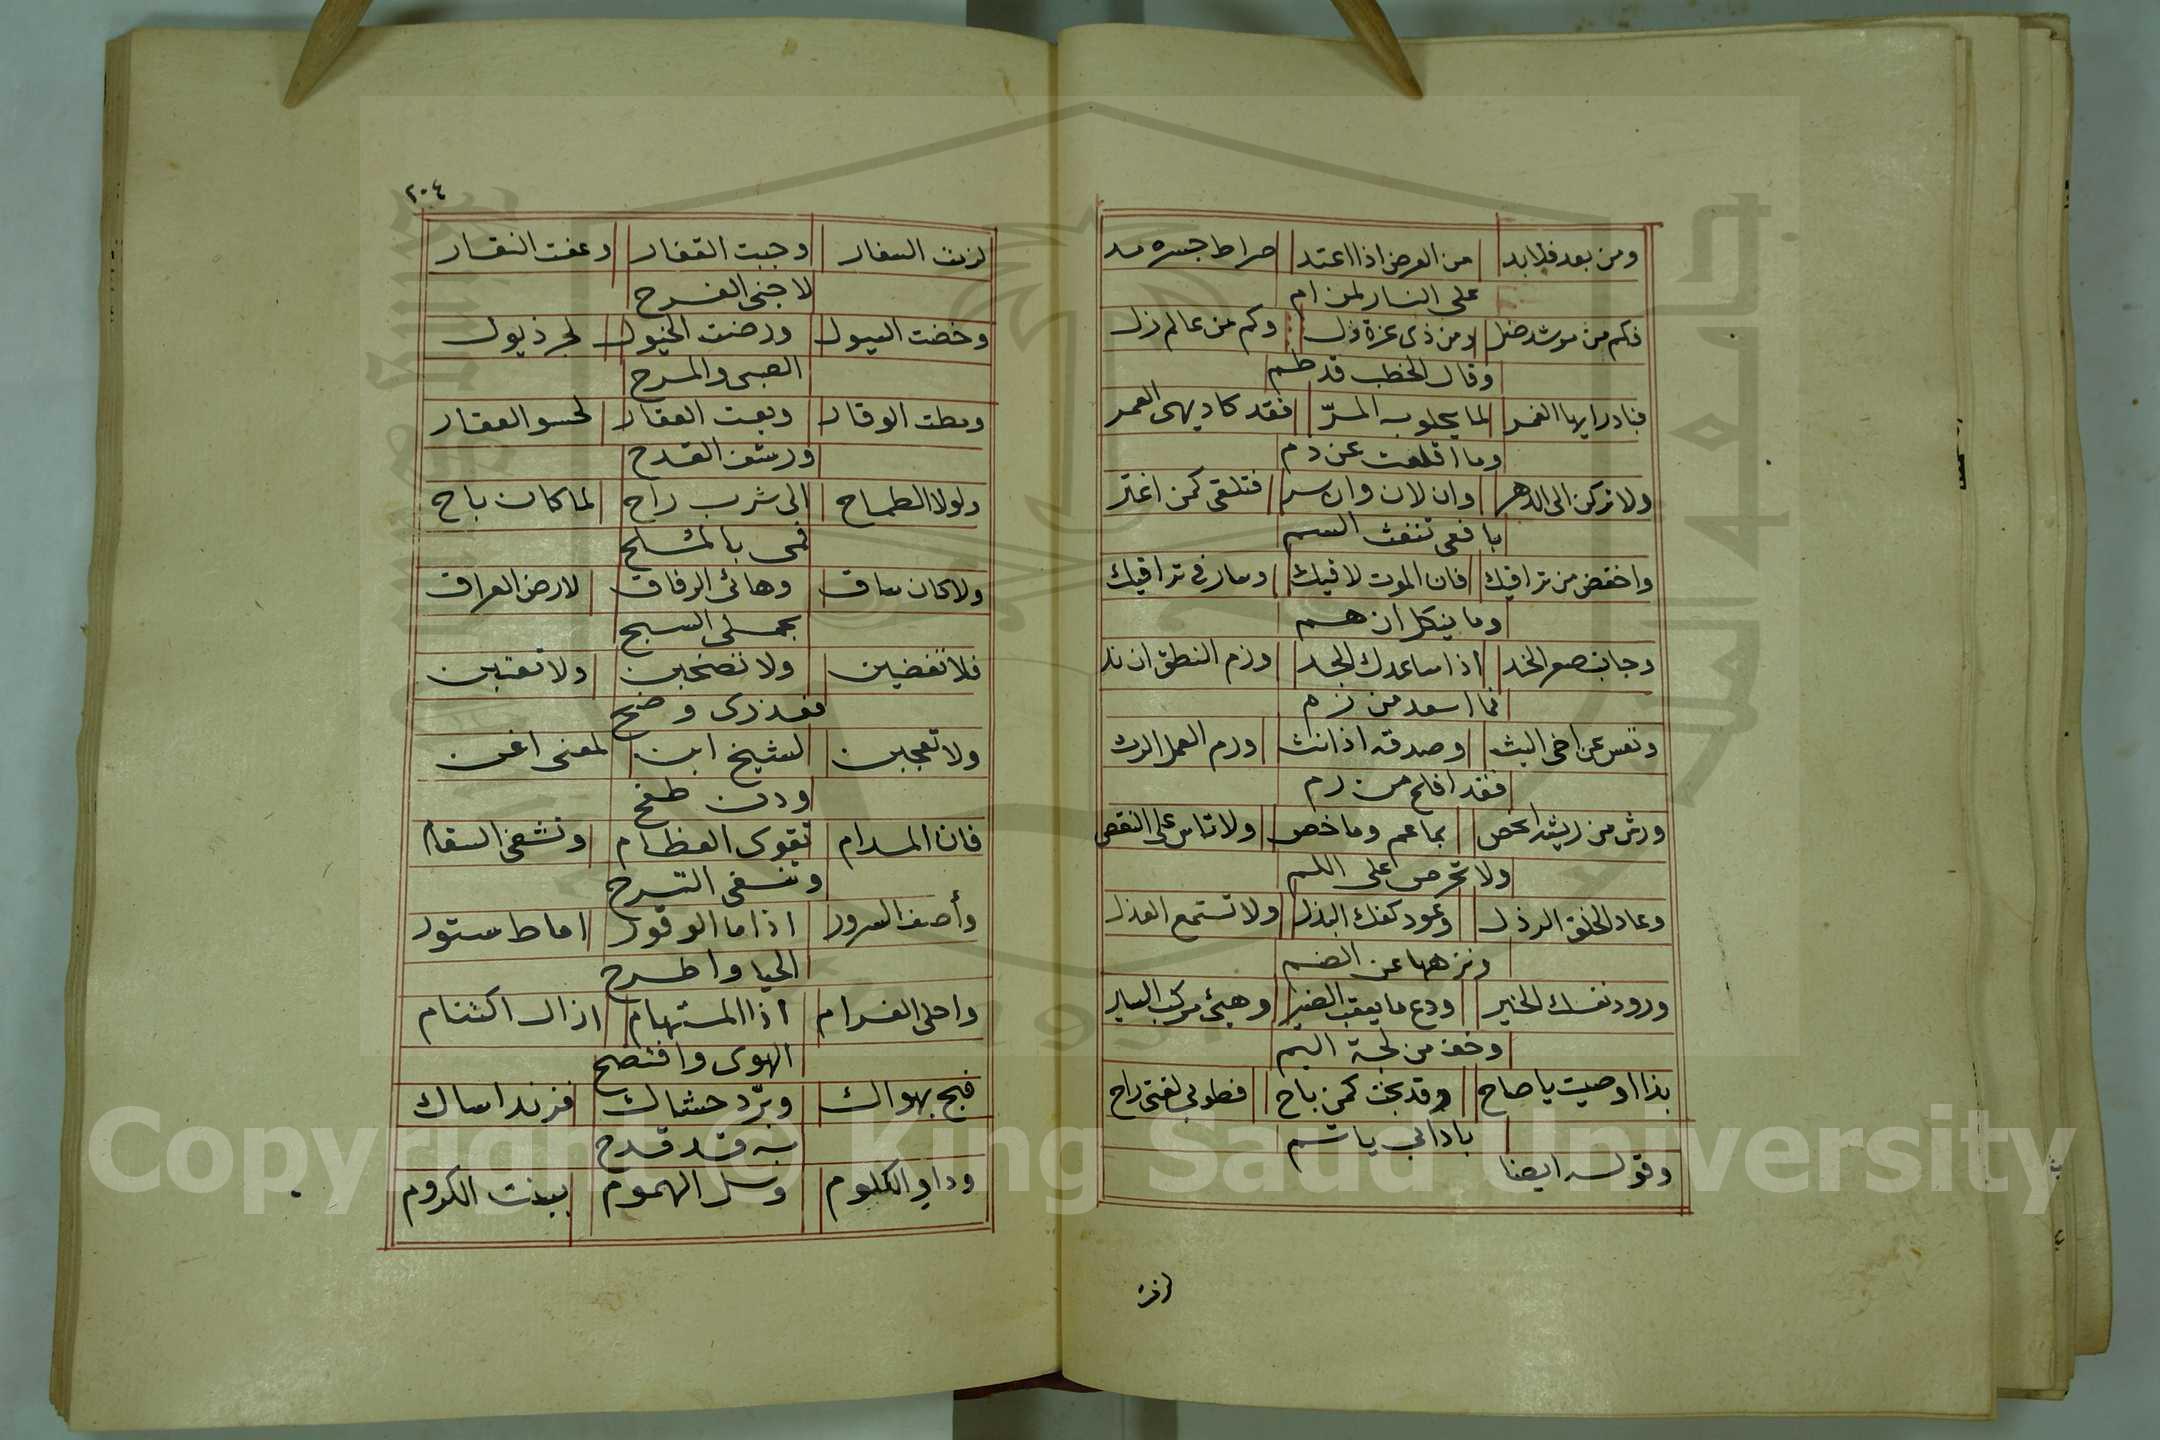 ومن بعد فلا بد من العرض اذا اعتد صراط جسره مد
على النار لمن ام
فكم من مرشد ضل ومن ذى عزة ذل وكم من عالم زل
وقال الخطب قد طم
فبادر ايها الغمر لما يحلو به المرّ فقد كاد يهى العمر
وما اقلعت عن ذم
ولا تركن الى الدهر وان لان وان سر فتلقى كمن اغتر
بافعى تنفث السم
واخفض من تراقيك فان الموت لاقيك وسار فى تراقيك
وما ينكل ان هم
وجانب صعر الخد اذا ساعدك الجد وزم النطق ان ند
فما اسعد من زم
ونفس عن اخى البث وصدقه اذا نث ورم العمل الرث
فقد افلح من رم
ورش من ريشه انحص بما عم وما خص ولا تاس على النقص
ولا تحرص على اللم
وعاد الخلق الرذل وعود كفك البذل ولا تستمع العذل
ونزهها عن الضم
وزود نفسك الخير ودع ما يعقب الضير وهيئ مركب السير
وخف من لجة اليم
بذا اوصيت يا صاح وقد بحت كمن باح فطوبى لفتى راح
بادابى ياتم
وقوله ايضا
لزمت
٢٠٤
لزمت السفار وجبت القفار وعفت النفار
لاجنى الفرح
وخضت السيول ورضت الخيول لجر ذيول
الصبى والمرح
ومطت الوقار وبعت العقار لحسو العقار
ورشف القدح
ولولا الطماح الى شرب راح لما كان باح
فمى بالملح
ولا كان ساق دهائى الرفاق لارض العراق
بحملى السبح
فلا تغضبن ولا تصخبن ولا تعتبن
فعذرى وضح
ولا تعجبن لشيخ ابن لمغنى اغن
ودن طفح
فان المدام تقوى العظام وتشفى السقام
وتنفى الترح
وأصفى السرور اذا ما الوقور اماط ستور
الحيا واطرح
واحلى الغرام اذا المستهام ازال اكتتام
الهوى وافتضح
فبح بهواك وبرّد حشاك فزند اساك
به قد قدح
وداو الكلوم وسل الهموم ببنت الكروم
Copyright © King Saud University